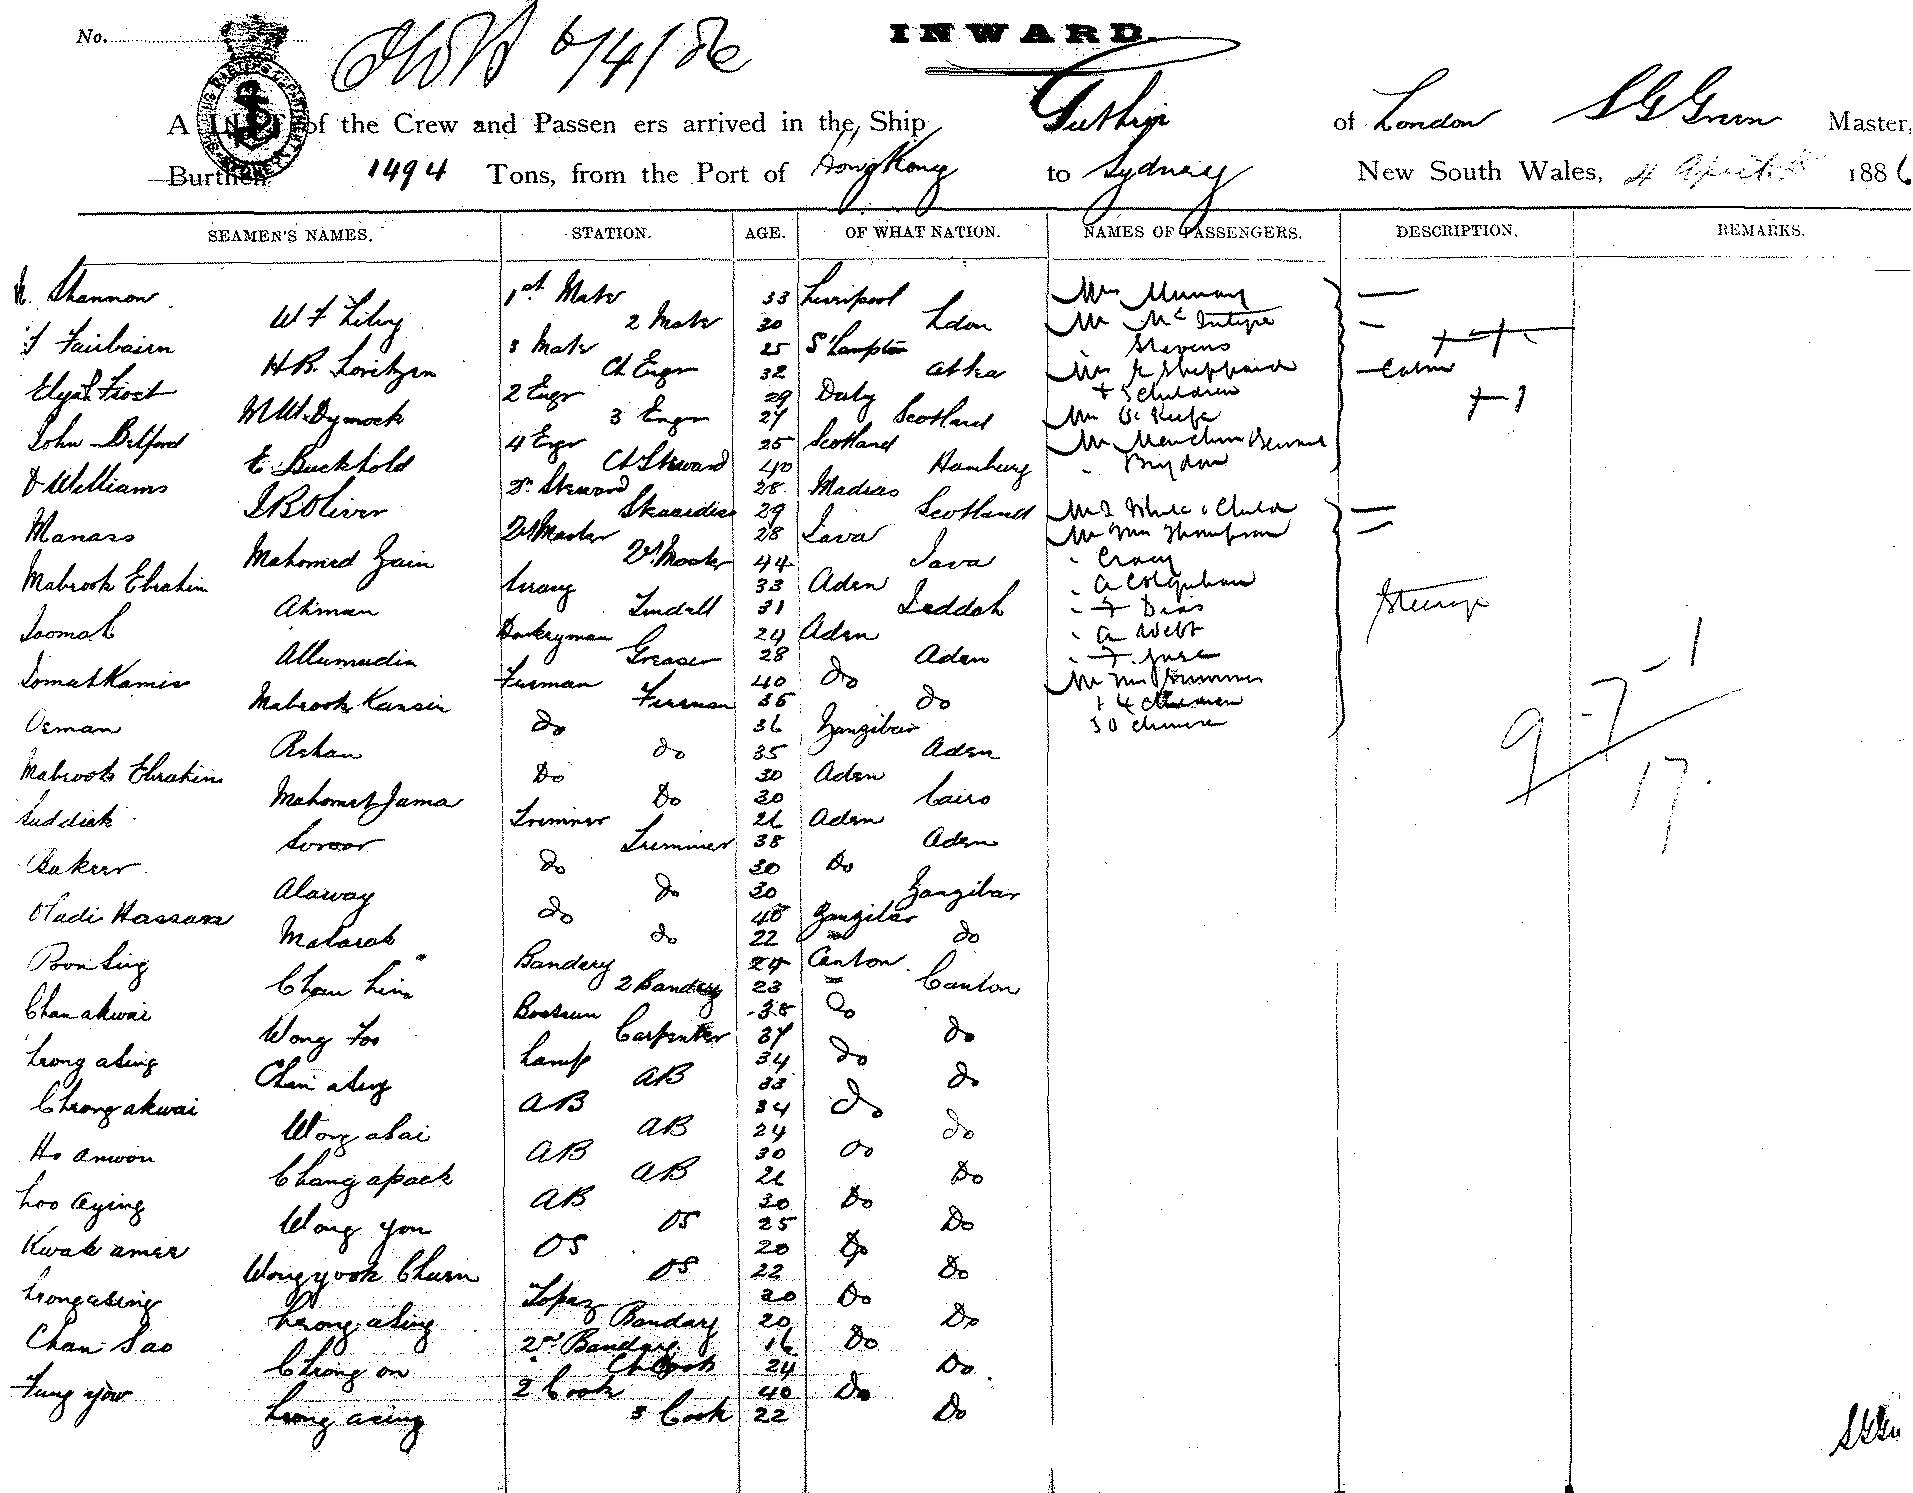 No.
6/4/86
INWARD.
A LIST of the Crew and Passen ers arrived in the Ship Guthrie of London S G Green Master,
Burthen 1494 Tons, from the Port of Hong Kong to Sydney New South Wales, 4 April 1886
SEAMEN'S NAMES. STATION. AGE. OF WHAT NATION. NAMES OF PASSENGERS. DESCRIPTION. REMARKS.
Shannon 1st Mate 33 Liverpool Mrs Murray
2 Mate 30 Ldon Mr McIntyre
Fairbairn 3 Mate 25 S'hampton Stevens
Ch Engr 32 Mrs Sheppard
Frost 2 Engr 29 + 5 children
M W Dymock 3 Engr 27 Scotland Mr O'Keefe
John Belford 4 Engr 25 Scotland Mr
E Buckhold Ch Steward 40 Hamburg Brydon
D Williams 2nd Steward 28 Madras
J R Oliver Stewardess 29 Scotland White & Child
Manass 28 Java Mr Mrs Thompson
Mahomed Zain 44 Java
Mabrook Ebrahim Serang 33 Aden A Colquhoun
Ahman Tindall 31 Jeddah F Dias
Joomah Donkeyman 24 Aden A Webb
Allumudin Greaser 28 Aden
Jomat Kamis Fireman 40 Do Mr Mrs
Mabrook Kansin Fireman 35 do + 4 children
Osman Do 36 Zanzibar 50 chinese
Rehan do 35 Aden
Mabrook Ebrahim Do 30 Aden
Mahomet Jama Do 30 Cairo
Suddick Trimmer 21 Aden
Soroor Trimmer 38 Aden
Bakeer do 30 Do
Alaway do 30 Zanzibar
Hadi Hassan do 48 Zanzibar
Mabarak do 22 do
Bandery 24 Canton
Chan 2 Bandery 23 Canton
Chan akwai Boatsun 38 Do
Wong Foo Carpenter 37 do
Leong asing Lamp 34 do
Chan asing AB 33 do
Cheong akwai AB 34 do
Wong asai AB 24 do
Ho anwon AB 30 do
Chang apack AB 21 Do
Loo aying AB 30 Do
Wong you OS 25 Do
Kwak amee OS 20 Do
Wong yook Churn OS 22 Do
Leong asing Topaz 20 Do
Leong asing Bandary 20 Do
Chan Sao 2nd Bandary 16 Do
Cheong on Ch Cook 24 Do
Fung yow 2 Cook 40 Do
Leong asing 3 Cook 22 Do
Cabin
Steerage
9 - 7 - 1
17.